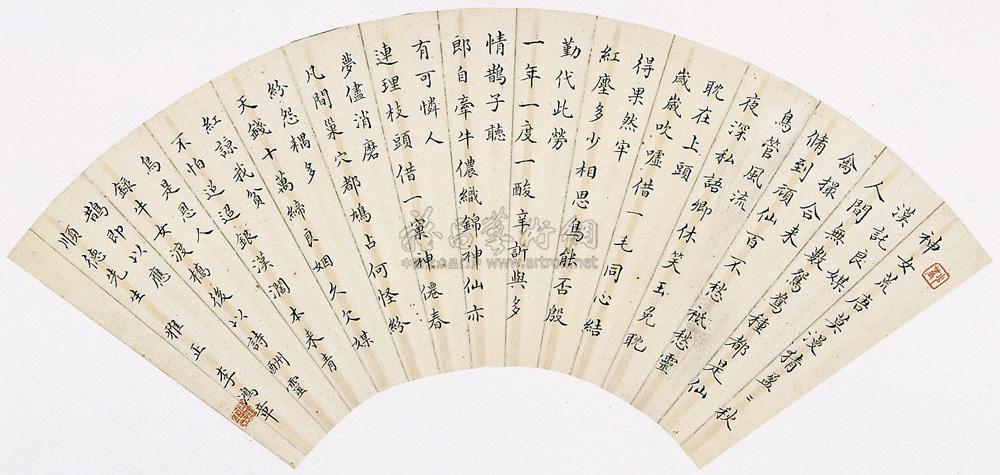 漢神女荒唐莫漫猜盈盈秋
人間託良媒
禽撮合無數鴛鴦種都是仙
脩到頑仙百不愁祗愁靈
鳥管風流
夜深私語卿休笑玉兔耽
耽在上頭
歲歲吹噓借一毛同心結
得果然牢
紅塵多少相思鳥能否殷
勤代此勞
一年一度一酸辛訂與多
情鵲子聽
郎自牽牛儂織錦神仙亦
有可憐人
連理枝頭借一巢神僊春
夢儘消磨
凡間巢穴都鳩占何怪紛
紛怨耦多
天錢十萬締良姻久欠媒
紅諒我貧
不怕迢迢銀漢濶本来青
鳥是恩人
牛女渡橋後以詩酬靈
鵲即以應
順德先生雅正
李鴻章